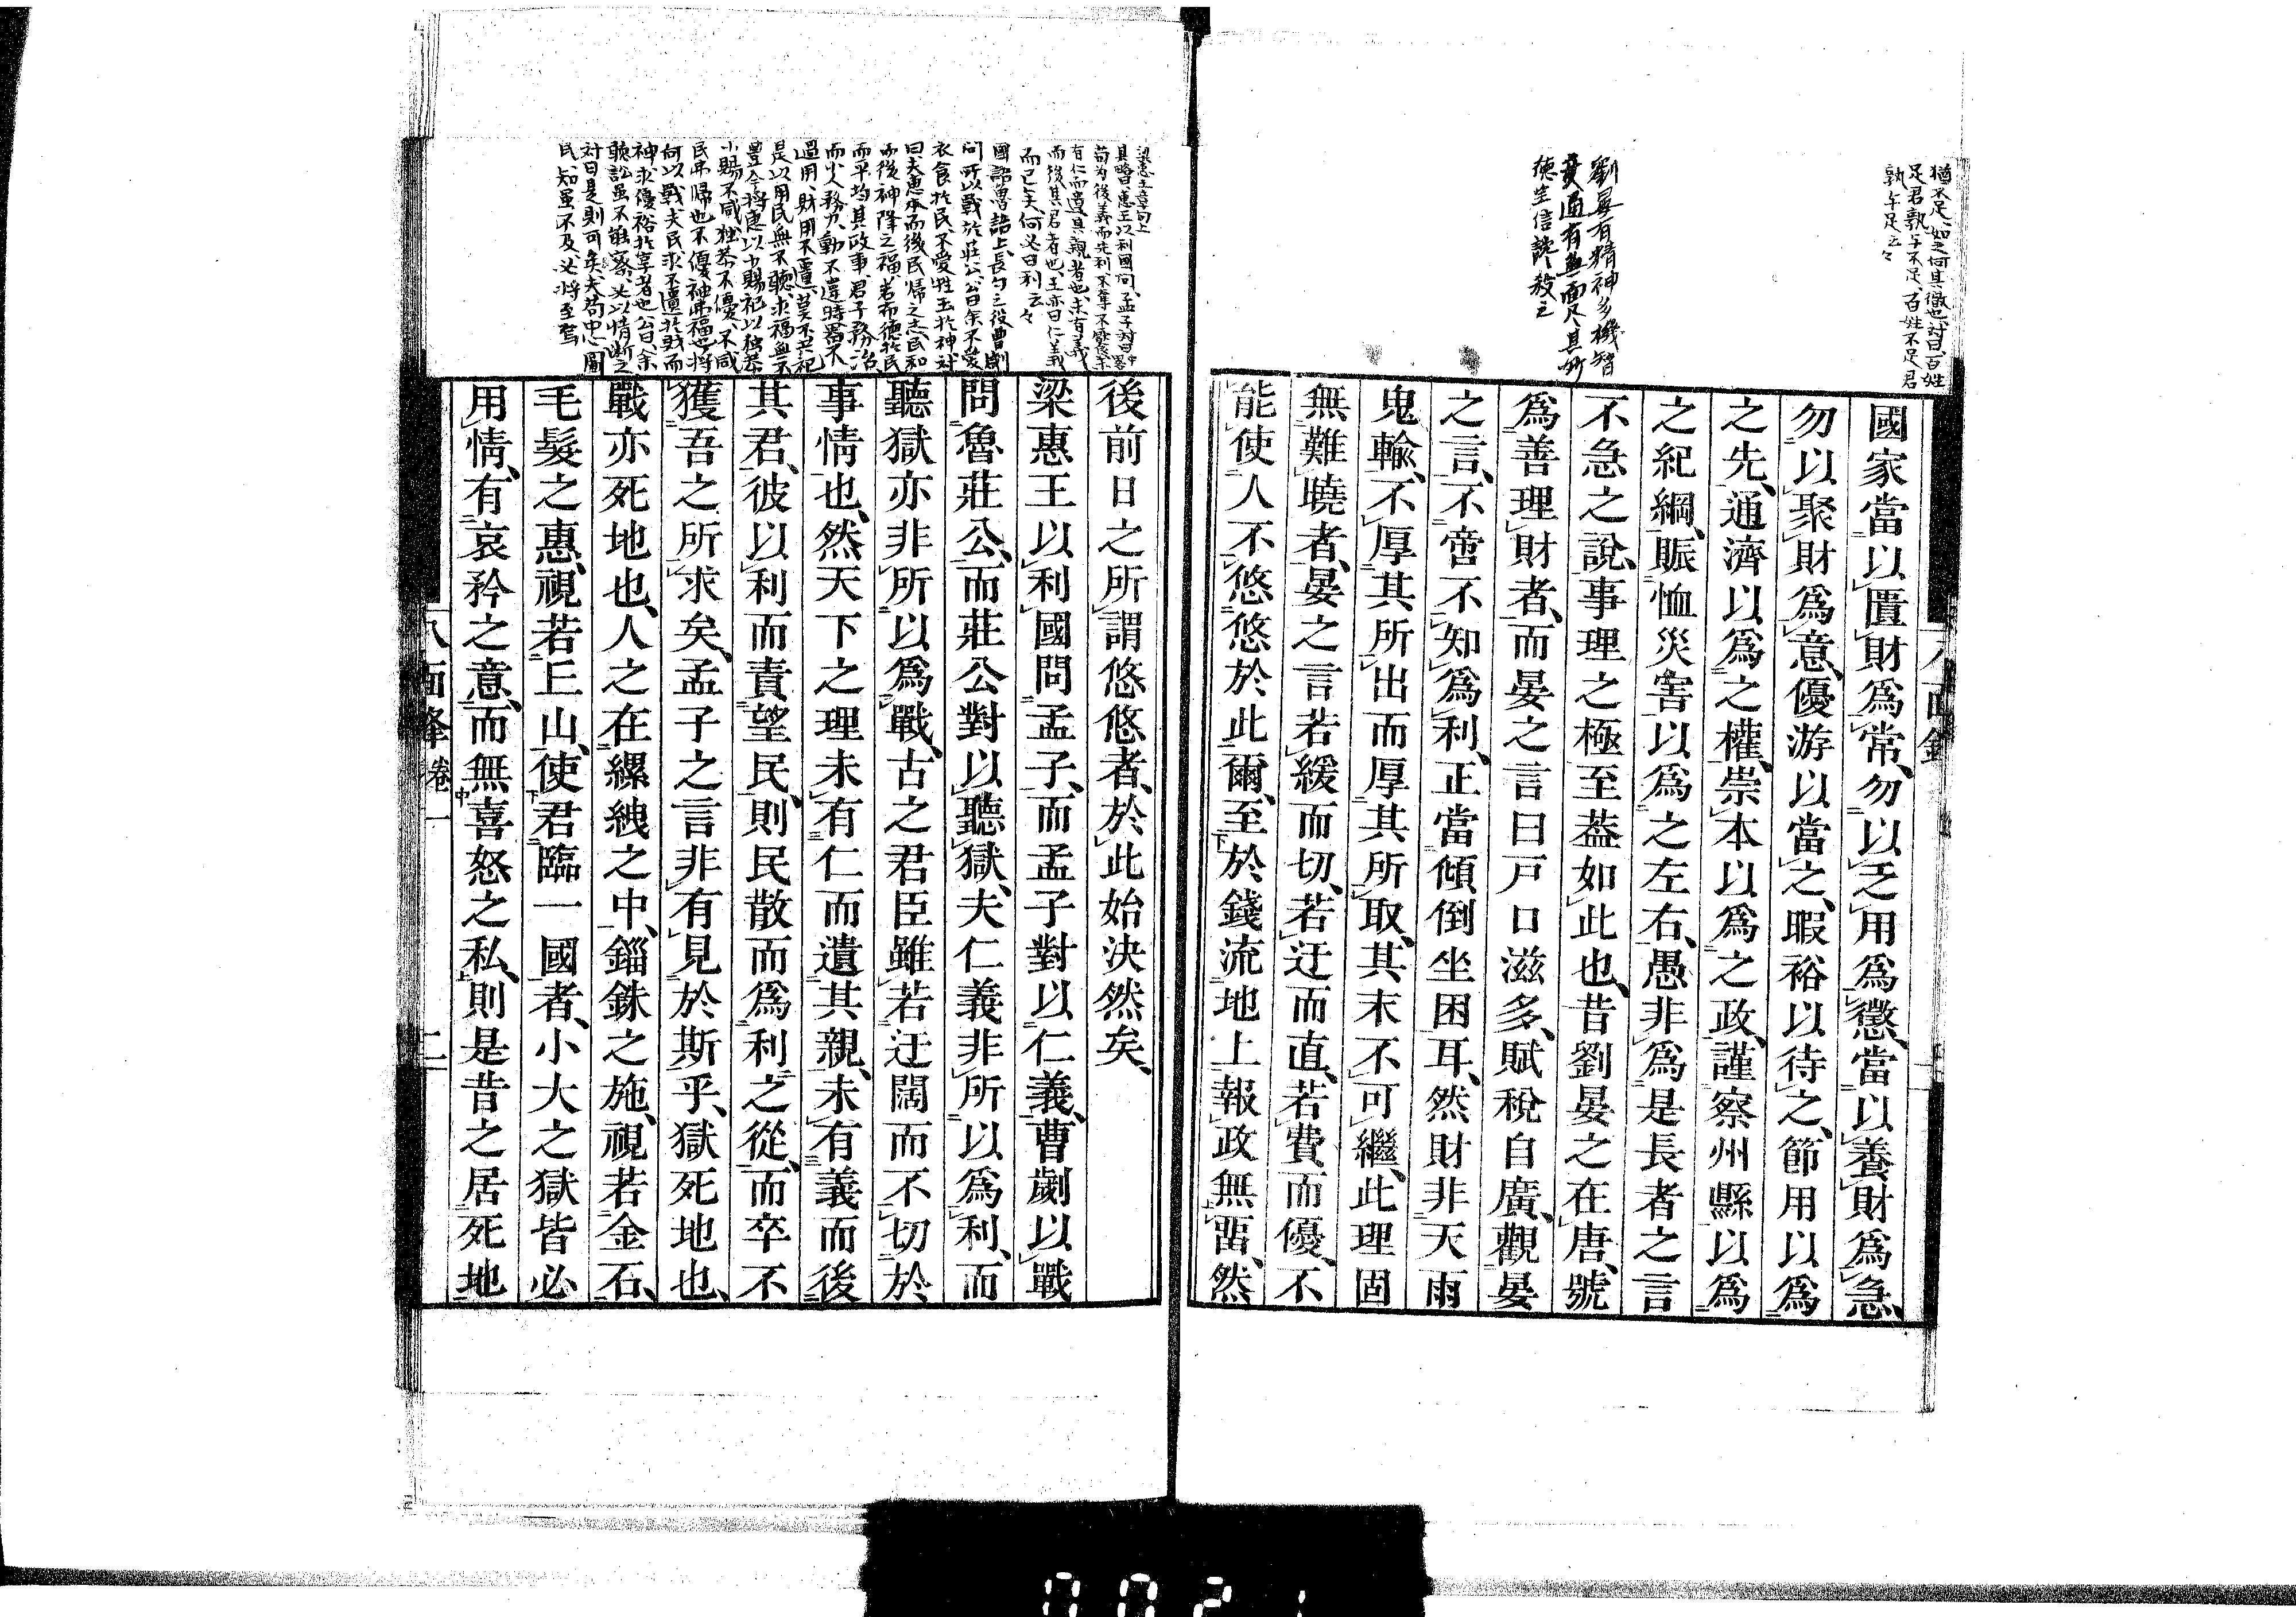 猶不足如之何其徹也対曰百姓
足君孰与不足、百姓不足君
孰与足云々
劉晏有精神多機智
變通有無曲尽其妙
國家當以匱財爲常、勿以乏用爲懲、當以養財爲急、
勿以聚財爲意、優游以當之、暇裕以待之、節用以爲
之先、通濟以爲之權、崇本以爲之政、謹察州縣以爲
之紀綱、賑恤災害以爲之左右、愚非爲是長者之言
不急之說、事理之極至葢如此也、昔劉晏之在唐、號
爲善理財者、而晏之言曰戸口滋多、賦稅自廣、觀晏
之言、不啻不知爲利、正當傾倒坐困耳、然財非天雨
鬼輸、不厚其所出而厚其所取、其末不可繼、此理固
無難曉者、晏之言若緩而切、若迂而直、若費而優、不
能使人不悠悠於此爾、至於錢流地上報政無畱、然
梁惠王章句上
其略曰惠王以利國問、孟子対曰
苟为後義而先利不奪不饜未
有仁而遺其親者也、未有義
而後其君者也、王亦曰仁義
而已矣、何必曰利云々
國語魯語上、長勺之役曹劌
問所以戰於莊公、公曰余不愛
衣食於民、不愛牲玉於神、対
曰夫惠本而後民帰之志、民和
而後神降之福、若布德於民
而平均其政事、君子務治
而小人務力、動不違時、器不
過用、財用不匱、莫不共祀
是以用民無不聽、求福無不
豊、今将惠以小賜、祀以独恭
小賜不咸、独恭不優、不咸
民不帰也、不優神弗福也、将
何以戰、夫民求不匱於財而
神求優裕於享者也、公曰、余
聽訟虽不能察、必以情断之
対曰是則可矣、夫苟中心圖
民、知虽不及、必将至焉
後前日之所謂悠悠者、於此始決然矣、
梁惠王以利國問孟子、而孟子對以仁義、曹劌以戰
問魯莊公、而莊公對以聽獄、夫仁義非所以爲利、而
聽獄亦非所以爲戰、古之君臣雖若迂闊而不切於
事情也、然天下之理未有仁而遺其親、未有義而後
其君、彼以利而責望民、則民散而爲利之從、而卒不
獲吾之所求矣、孟子之言非有見於斯乎、獄死地也、
戰亦死地也、人之在縲絏之中、錙銖之施、視若金石、
毛髮之惠、視若丘山、使君臨一國者、小大之獄皆必
用情、有哀矜之意、而無喜怒之私、則是昔之居死地
八面峰 卷一 二
0021